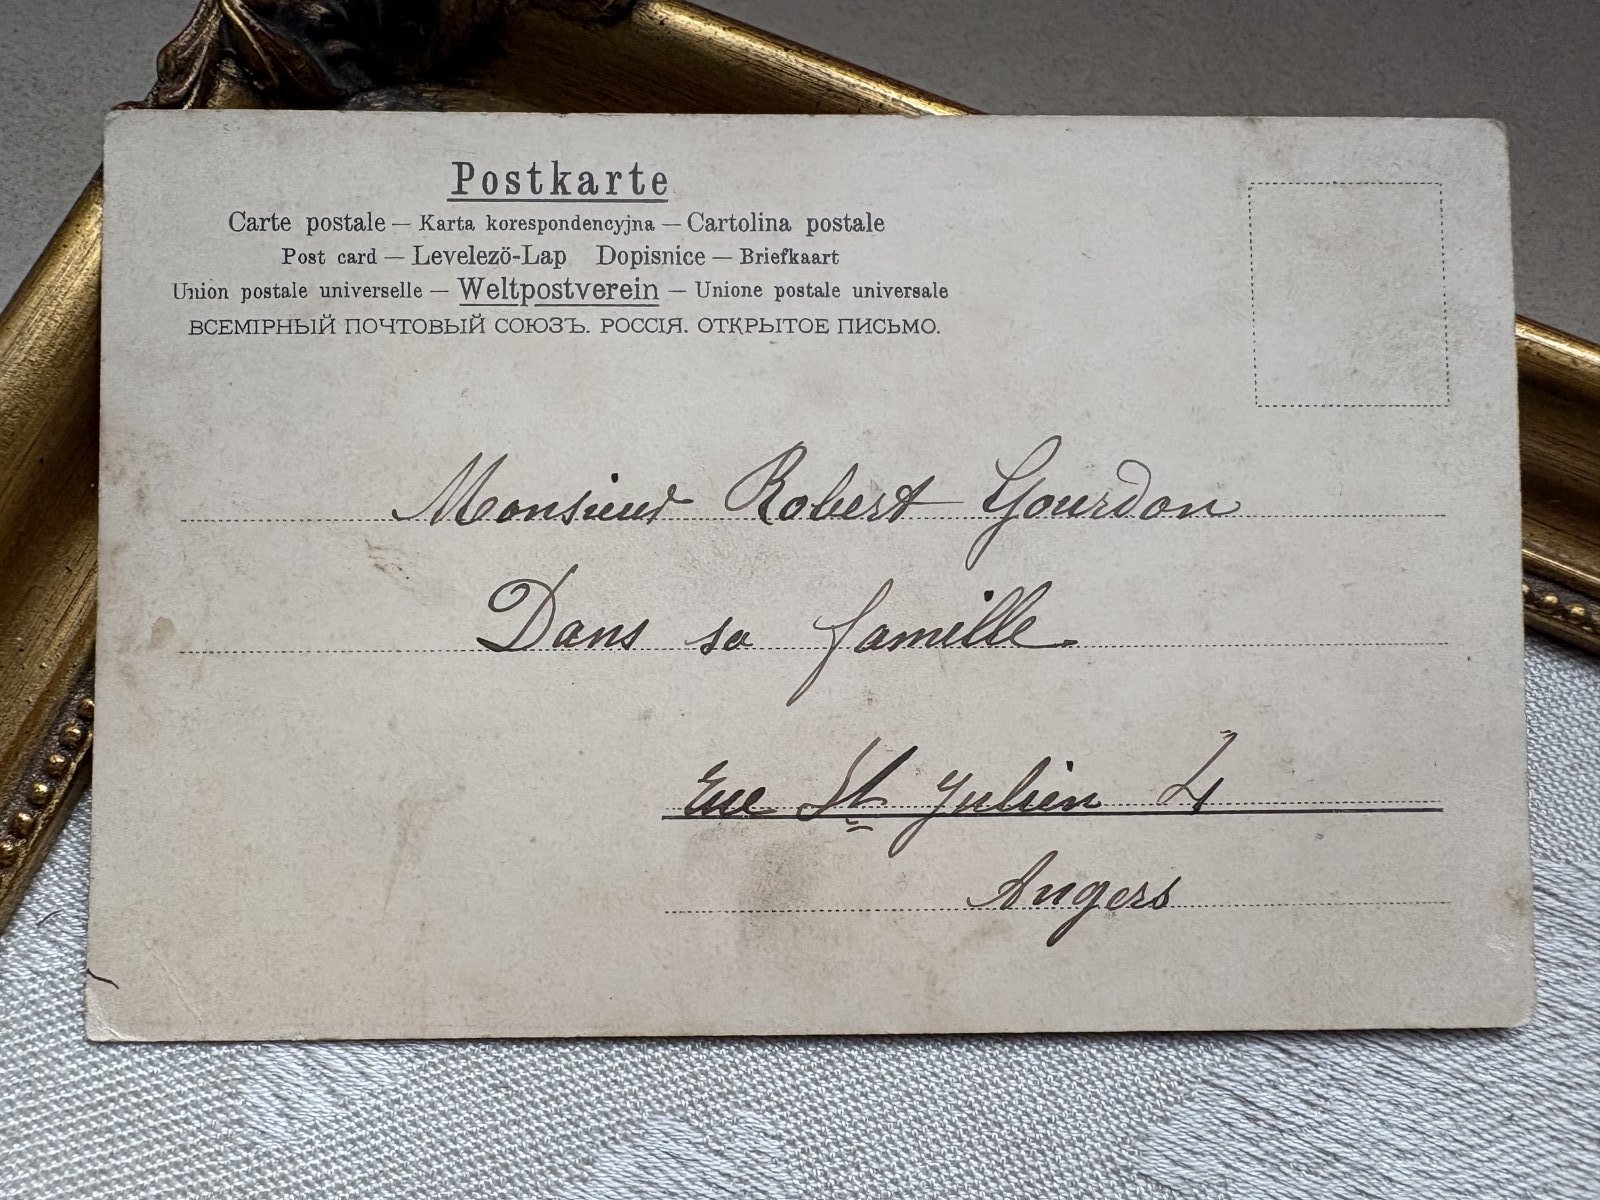 Postkarte
Carte postale — Karta korespondencyjna — Cartolina postale
Post card — Levelezö-Lap Dopisnice — Briefkaart
Union postale universelle — Weltpostverein — Unione postale universale
ВСЕМІРНЫЙ ПОЧТОВЫЙ СОЮЗЪ. РОССІЯ. ОТКРЫТОЕ ПИСЬМО.
Monsieur Robert Gourdon
Dans sa famille
St Julien
Angers